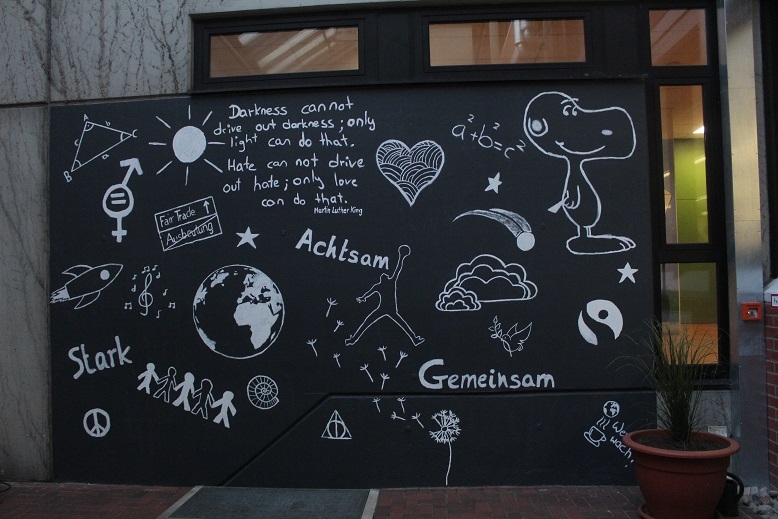 Darkness cannot
drive out darkness; only
light can do that.
Hate can not drive
out hate; only love
can do that.
Martin Luther King
a²+b²=c²
A
B
C
a
b
c
Fair Trade
Ausbeutung
Achtsam
Stark
Gemeinsam
Werd
wach!